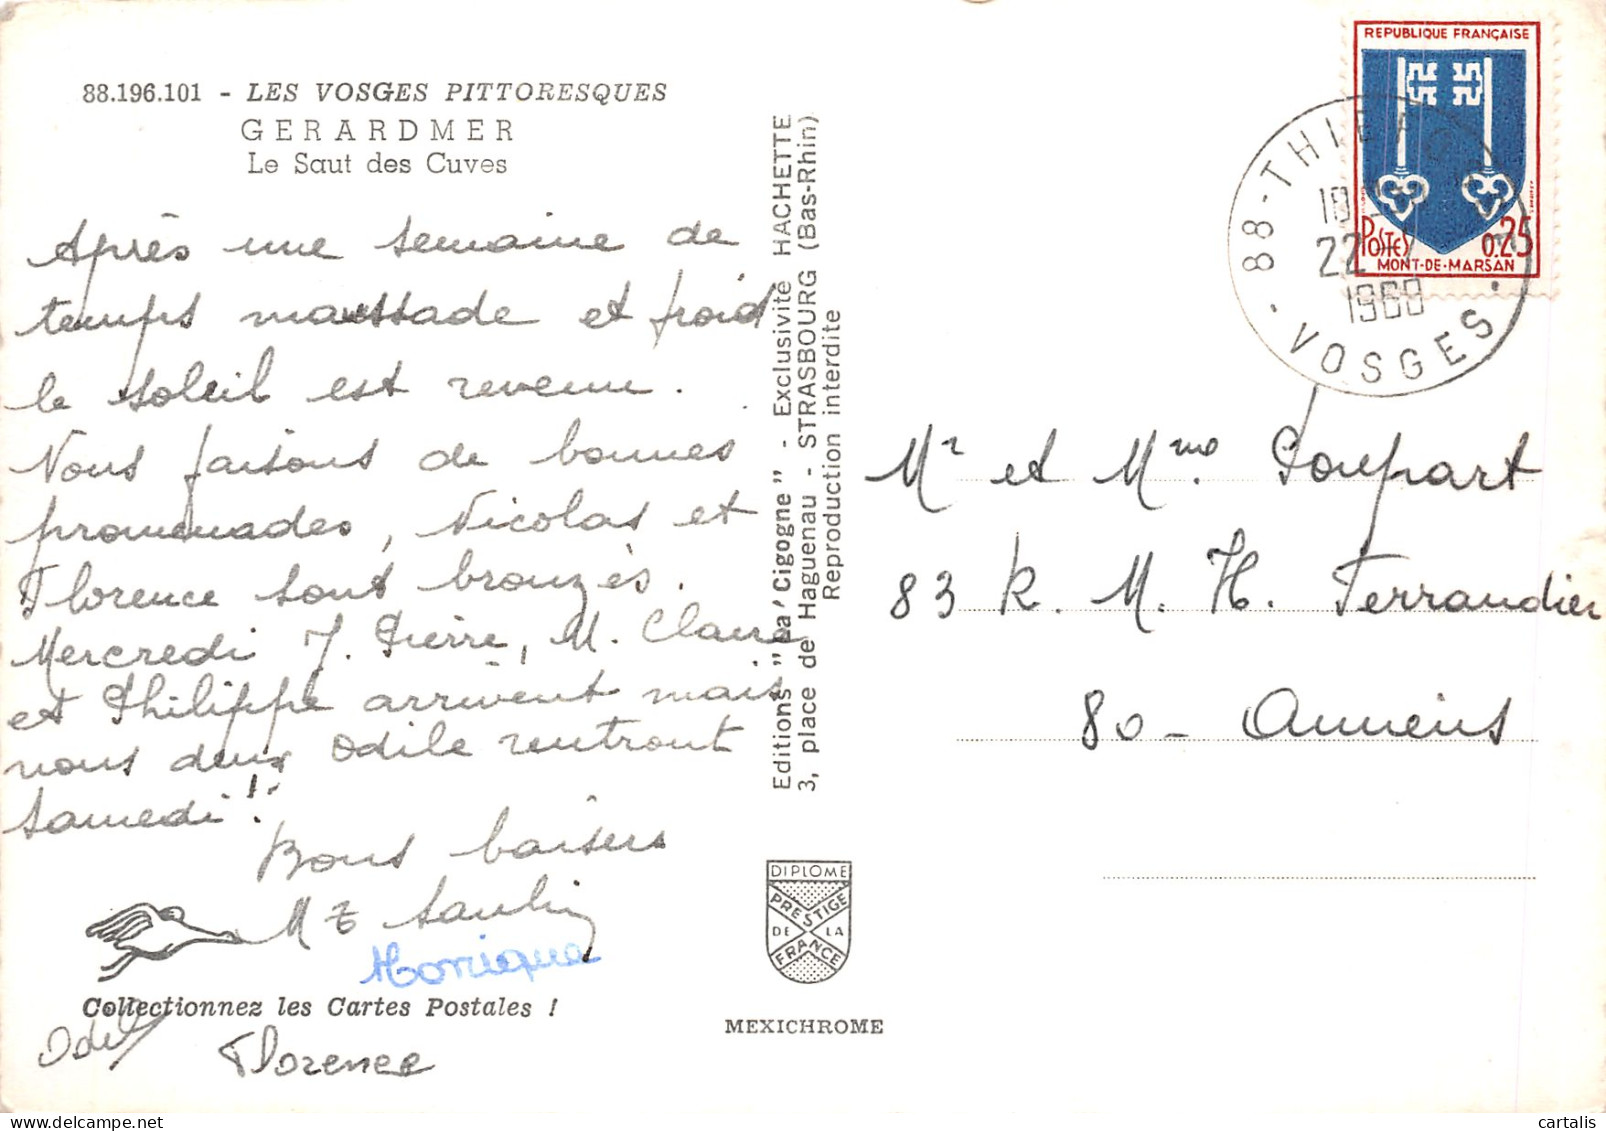 88.196.101 - LES VOSGES PITTORESQUES
GERARDMER
Le Saut des Cuves
Après une semaine de
temps maussade et froid
le soleil est revenu.
Nous faisons de bonnes
promenades, Nicolas et
Florence sont bronzés.
Mercredi J. Pierre, M. Claire
et Philippe arrivent mais
nous deux Odile rentront
samedi !
Bons baisers
M
Monique
Collectionnez les Cartes Postales !
Odile
Florence
Editions "La Cigogne" - Exclusivité HACHETTE
3, place de Haguenau - STRASBOURG (Bas-Rhin)
Reproduction interdite
DIPLOME
PRESTIGE
DE LA
FRANCE
MEXICHROME
REPUBLIQUE FRANÇAISE
POSTES 0.25
MONT-DE-MARSAN
88 - THIE
18
22
1968
- VOSGES -
Mr et Mme Poupart
83 R. M. H. Ferrandier
80 - Amiens
cartalis